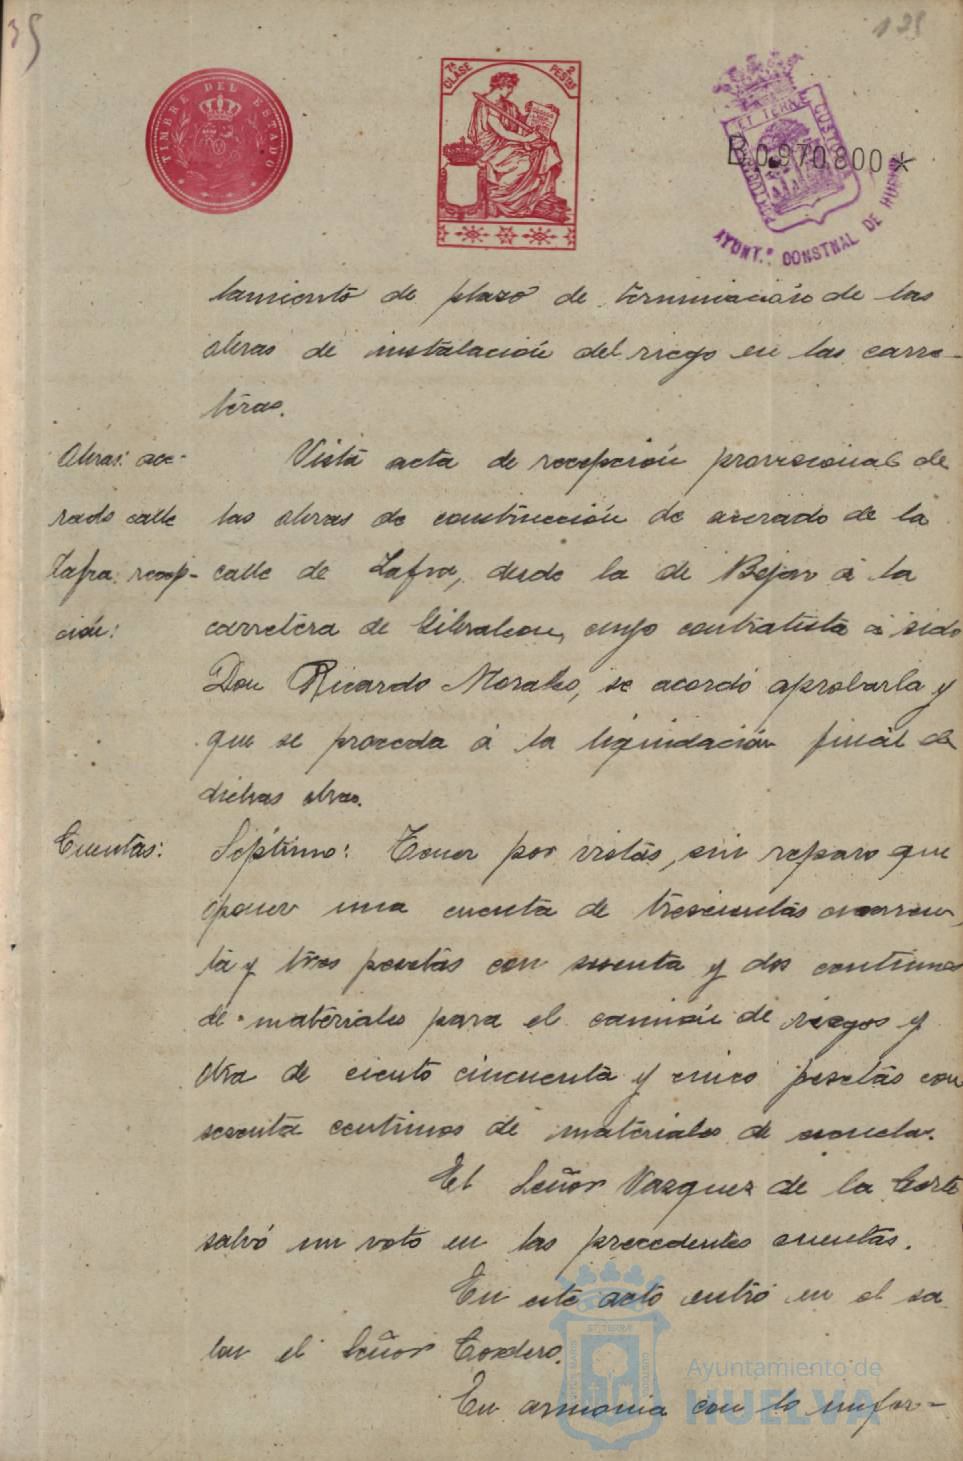 35
125
TIMBRE DEL ESTADO
7ª CLASE 2 PESTAS
ET TERRÆ CUSTODIA
B.0.970.800*
AYUNT.º CONSTNAL DE HUELVA
tamiento de plazo de terminación de las
obras de instalación del riego en las carre-
teras.
Obras: ace-
rado calle
Zafra: recep-
ción:
Vista acta de recepción provisional de
las obras de construcción de acerado de la
calle de Zafra, desde la de Bejar á la
carretera de Gibraleon, cuyo contratista á sido
Don Ricardo Morales, se acordó aprobarla y
que se proceda á la liquidación final de
dichas obras.
Cuentas:
Séptimo: Tener por vistas, sin reparo que
oponer una cuenta de trescientas cuaren-
ta y tres pesetas con sesenta y dos centimos
de materiales para el camión de riegos y
otra de ciento cincuenta y cinco pesetas con
sesenta centimos de materiales de escuela.
El Señor Vazquez de la Corte
salvó su voto en las precedentes cuentas.
En este acto entró en el sa-
lon el Señor Cordero.
En armonia con lo infor-
Ayuntamiento de
HUELVA